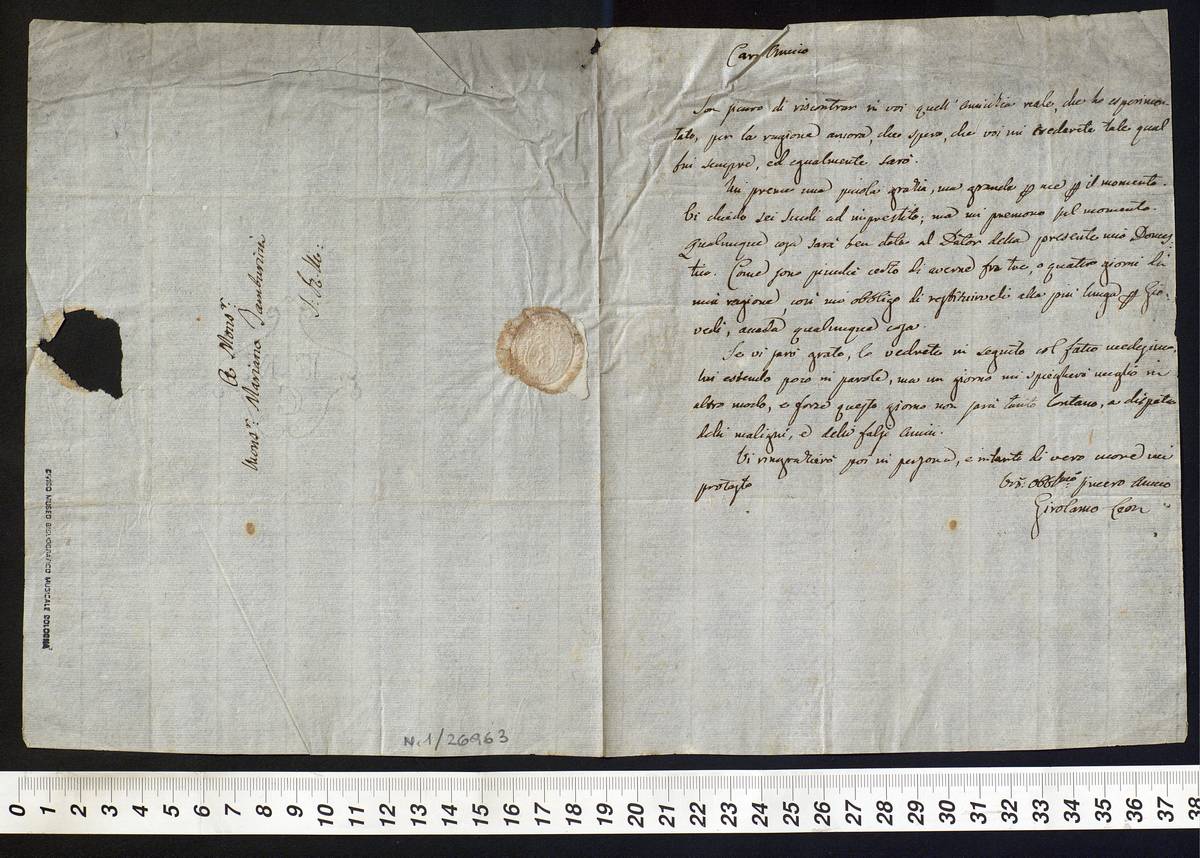 A Mons.r
Mons.r Mariano Tamburini
S. R. M.
CIVICO MUSEO BIBLIOGRAFICO MUSICALE BOLOGNA
N. 1/26963
Caro Amico
Son sicuro di riscontrar in voi quell'amicizia reale, che ho esperimen-
tato, per la ragione ancora, che spero, che voi mi crederete tale qual
fui sempre, ed egualmente sarò.
Mi preme una picola grazia, ma grande p me p il momento.
Vi chiedo sei scudi ad imprestito; ma mi premono sul momento.
Qualunque cosa sarà ben data al Dator della presente mio Domes-
tico. Come sono sicuro di averne fra tre, o quatro giorni di
mia ragione, così mi obbligo di restituirveli alla più lunga p Gio-
vedì, accada qualunque cosa.
Se vi sarò grato, lo vedrete in seguito col fatto medesimo,
lui essendo poco in parole, ma un giorno mi spiegherò meglio in
altro modo, e forse questo giorno non sarà tanto lontano, a dispeto
delli maligni, e delli falsi Amici.
Vi ringrazierò poi in persona, e intanto di vero cuore mi
protesto
Vro: Obblmo sincero Amico
Girolamo Leon
0 1 2 3 4 5 6 7 8 9 10 11 12 13 14 15 16 17 18 19 20 21 22 23 24 25 26 27 28 29 30 31 32 33 34 35 36 37 38